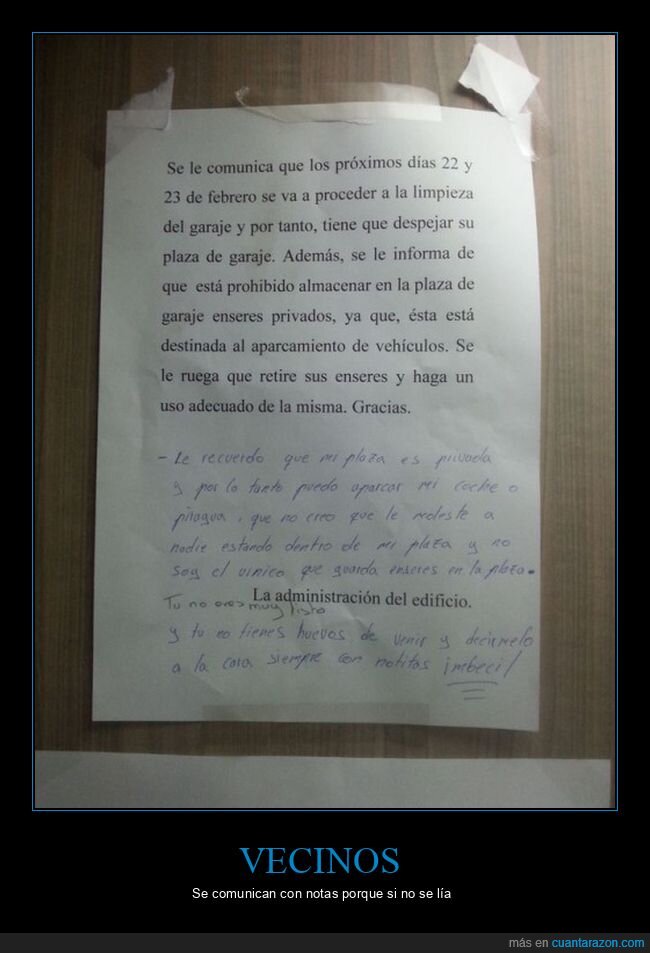 Se le comunica que los próximos días 22 y
23 de febrero se va a proceder a la limpieza
del garaje y por tanto, tiene que despejar su
plaza de garaje. Además, se le informa de
que está prohibido almacenar en la plaza de
garaje enseres privados, ya que, ésta está
destinada al aparcamiento de vehículos. Se
le ruega que retire sus enseres y haga un
uso adecuado de la misma. Gracias.
- Le recuerdo que mi plaza es privada
y por lo tanto puedo aparcar mi coche o
piragua, que no creo que le moleste a
nadie estando dentro de mi plaza y no
soy el único que guarda enseres en la plaza.
La administración del edificio.
Tu no eres muy listo
y tu no tienes huevos de venir y decirmelo
a la cara siempre con notitas imbecil
VECINOS
Se comunican con notas porque si no se lía
más en cuantarazon.com